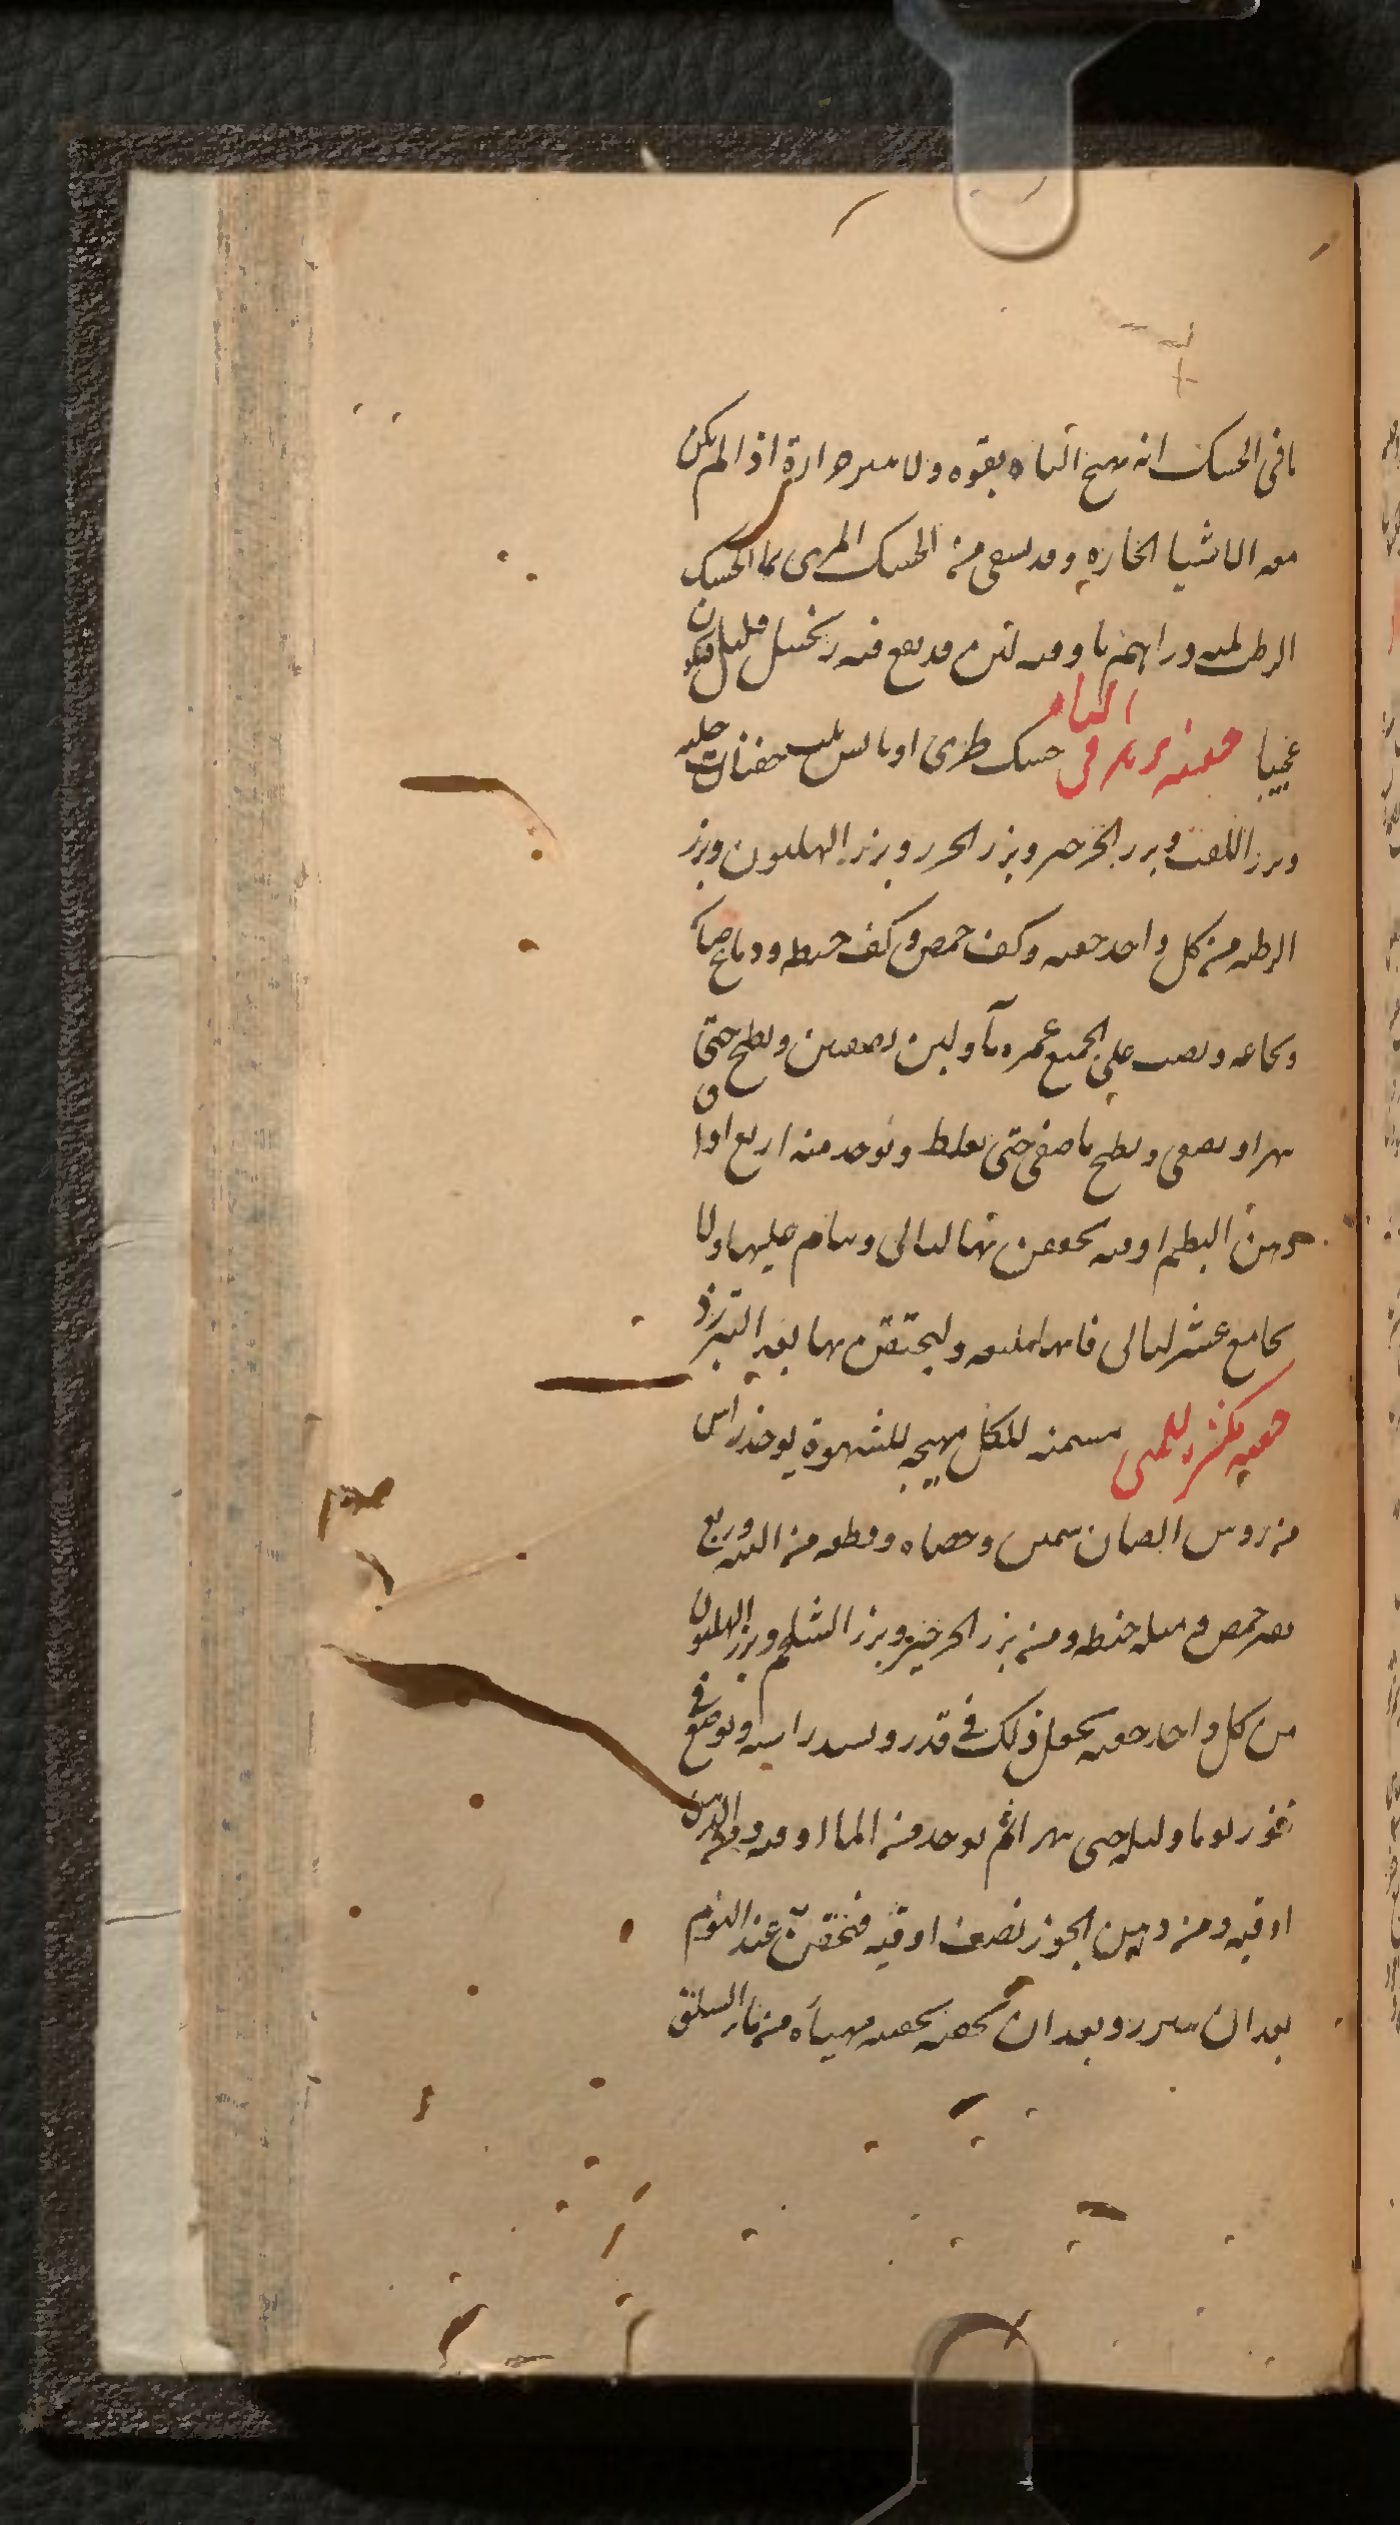 ما في الحسك انه يهيج الباه بقوه ولا يثير حرارة اذا لم يكن
معه الاشيا الحاره وقد يسقى من الحسك المربى بما الحسك
الرطب ثلثه دراهم باوقيه لبن وقد يقع فيه زنجبيل قليل فيكون
عجيبا حقنه تزيد في الباه حسك طرى او يابس ثلث حفنات حلبه
وبزر اللفت وبزر الجرجير وبزر الجزر وبزر الهليون وبزر
الرطبه من كل واحد حفنه وكف حمص وكف حنطه ودماغ ضان
ونخاعه ويصب على الجميع غمره ماء ولبن نصفين ويطبخ حتى
يهرا ويصفى ويطبخ ما صفى حتى يغلظ ويوخذ منه اربع اواق
دهن البطم اوقيه يحقن بها ليالى وينام عليها ولا
يجامع عشر ليالى فانها بليغه وليحتقن بها بعد التبرز
حقنه مكثره للمنى مسمنه للكلى مهيجه للشهوة يوخذ راس
من روس الضان سمين وخصاه وقطعه من اليته وربع
حمص ومثله حنطه ومن بزر الجرجير وبزر الشلجم وبزر الهليون
من كل واحد حفنه يجعل ذلك في قدر ويسد راسه ويوضع في
تنور يوما وليله حتى يهرا ثم يوخذ من الما اوقيه ومن الدهن
اوقيه ومن دهن الجوز نصف اوقيه فتحقن عند النوم
بعد ان يتبرز وبعد ان يحقن بحقنه مهيأه من ما السلق